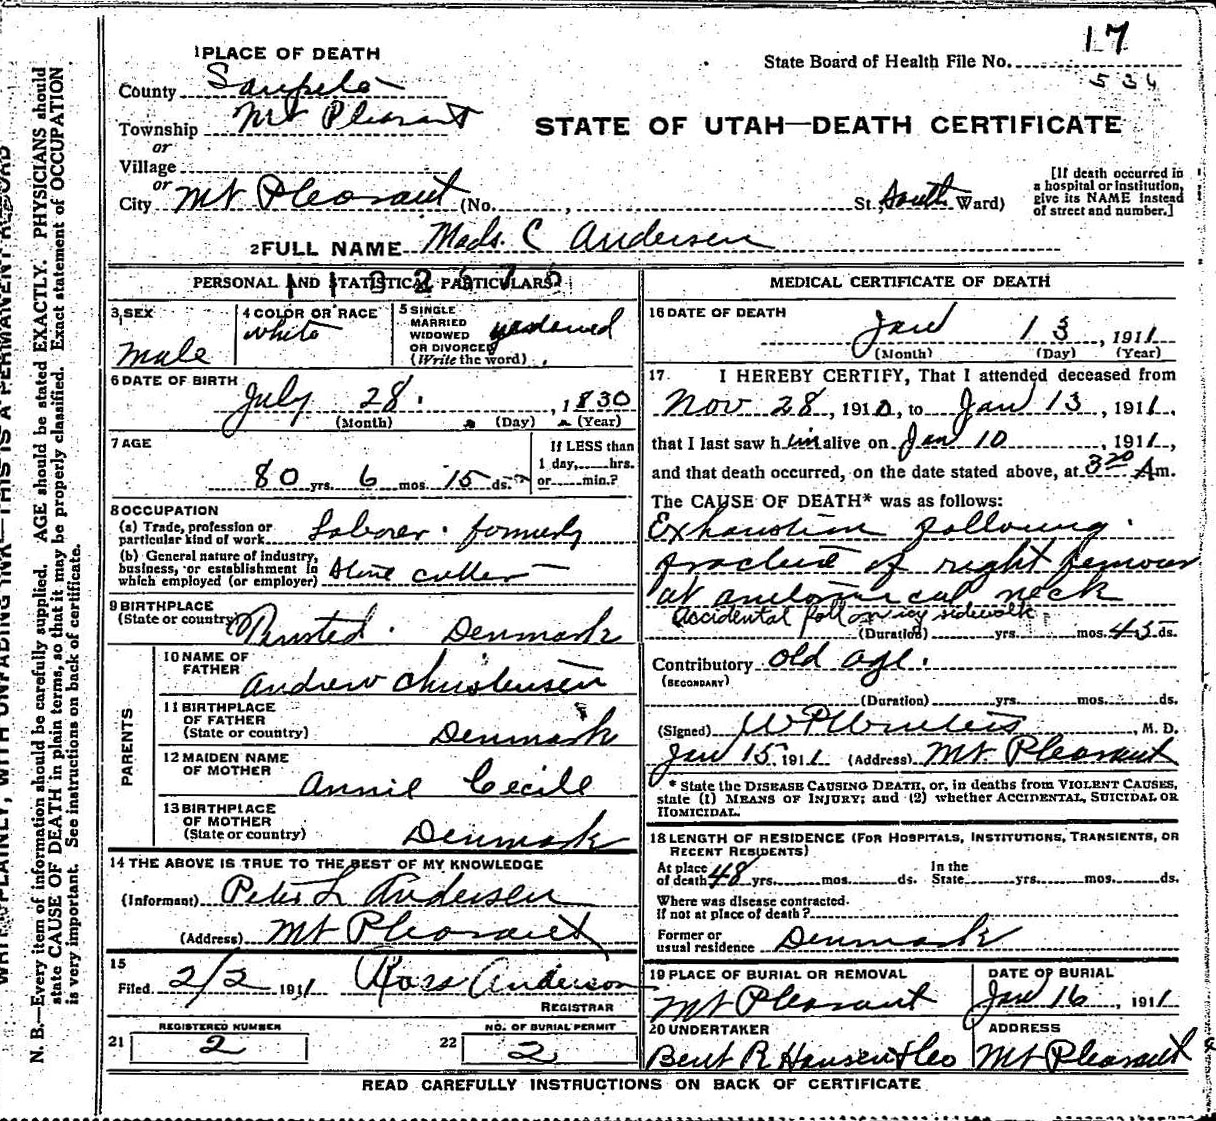 17
1 PLACE OF DEATH
State Board of Health File No.
534
County Sanpete
Township Mt Pleasant
STATE OF UTAH—DEATH CERTIFICATE
or
Village
or
City Mt Pleasant (No. , St., South Ward)
[If death occurred in
a hospital or institution,
give its NAME instead
of street and number.]
2 FULL NAME Mads. C Andersen
PERSONAL AND STATISTICAL PARTICULARS
3 SEX
Male
4 COLOR OR RACE
White
5 SINGLE
MARRIED
WIDOWED
OR DIVORCED
(Write the word)
6 DATE OF BIRTH
July 28. , 1830
(Month) (Day) (Year)
7 AGE
80 yrs. 6 mos. 15 ds.
If LESS than
1 day, hrs.
or min.?
8 OCCUPATION
(a) Trade, profession or
particular kind of work Laborer. formerly
(b) General nature of industry,
business, or establishment in
which employed (or employer) Stone cutter
9 BIRTHPLACE
(State or country) Denmark
PARENTS
10 NAME OF
FATHER
Andrew Christensen
11 BIRTHPLACE
OF FATHER
(State or country) Denmark
12 MAIDEN NAME
OF MOTHER
Annie Cecile
13 BIRTHPLACE
OF MOTHER
(State or country) Denmark
14 THE ABOVE IS TRUE TO THE BEST OF MY KNOWLEDGE
(Informant) Peter L Andersen
(Address) Mt Pleasant
15
Filed 2/2 1911 Ross Anderson
REGISTRAR
REGISTERED NUMBER
21 2
NO. OF BURIAL PERMIT
22 2
MEDICAL CERTIFICATE OF DEATH
16 DATE OF DEATH
Jan 13 , 1911
(Month) (Day) (Year)
17. I HEREBY CERTIFY, That I attended deceased from
Nov 28, 1910, to Jan 13, 1911,
that I last saw h im alive on Jan 10, 1911,
and that death occurred, on the date stated above, at 3 20 Am.
The CAUSE OF DEATH* was as follows:
Exhaustion following
fracture of right femour
at anatomical neck
Accidental fall on icy sidewalk
(Duration) yrs. mos. 45 ds.
Contributory Old age.
(SECONDARY)
(Duration) yrs. mos. ds.
(Signed) , M. D.
Jan 15, 1911 (Address) Mt. Pleasant
* State the DISEASE CAUSING DEATH, or, in deaths from VIOLENT CAUSES,
state (1) MEANS OF INJURY; and (2) whether ACCIDENTAL, SUICIDAL OR
HOMICIDAL.
18 LENGTH OF RESIDENCE (FOR HOSPITALS, INSTITUTIONS, TRANSIENTS, OR
RECENT RESIDENTS)
At place
of death 48 yrs. mos. ds.
In the
State yrs. mos. ds.
Where was disease contracted.
If not at place of death?
Former or
usual residence Denmark
19 PLACE OF BURIAL OR REMOVAL
Mt Pleasant
DATE OF BURIAL
Jan 16, 1911
20 UNDERTAKER
Bent R Hansen & Co
ADDRESS
Mt Pleasant
READ CAREFULLY INSTRUCTIONS ON BACK OF CERTIFICATE
WRITE PLAINLY, WITH UNFADING INK—THIS IS A PERMANENT RECORD
N. B.—Every item of information should be carefully supplied. AGE should be stated EXACTLY. PHYSICIANS should
state CAUSE OF DEATH in plain terms, so that it may be properly classified. Exact statement of OCCUPATION
is very important. See instructions on back of certificate.